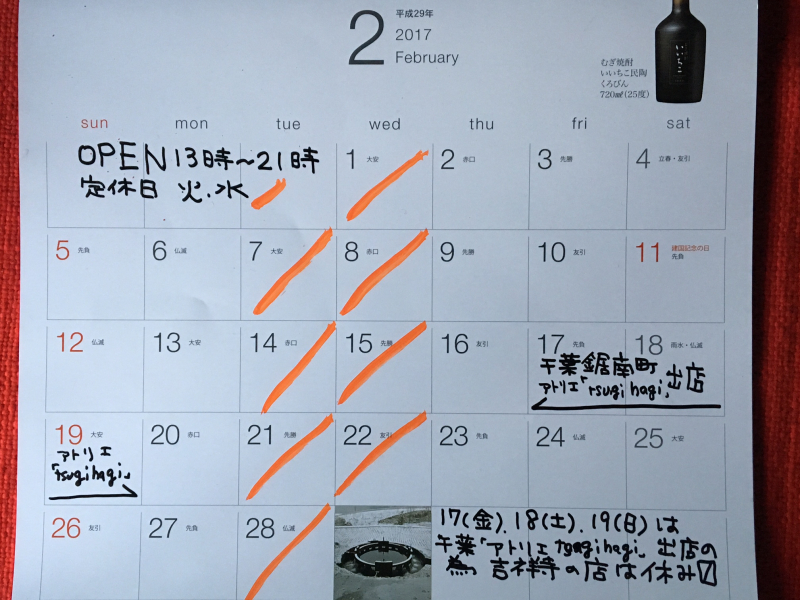 2
平成29年
2017
February
むぎ焼酎
いいちこ民陶
くろびん
720ml(25度)
いいちこ
sun mon tue wed thu fri sat
OPEN 13時〜21時
定休日 火.水
1 大安 2 赤口 3 先勝 4 立春・友引
5 先負 6 仏滅 7 大安 8 赤口 9 先勝 10 友引 11 建国記念の日
先負
12 仏滅 13 大安 14 赤口 15 先勝 16 友引 17 先負 18 雨水・仏滅
千葉鋸南町
アトリエ「tsugihagi」出店
19 大安 20 赤口 21 先勝 22 友引 23 先負 24 仏滅 25 大安
アトリエ
「tsugihagi」
26 友引 27 先負 28 仏滅
17(金).18(土).19(日)は
千葉「アトリエ tsugihagi」出店の
為 吉祥寺の店は休み